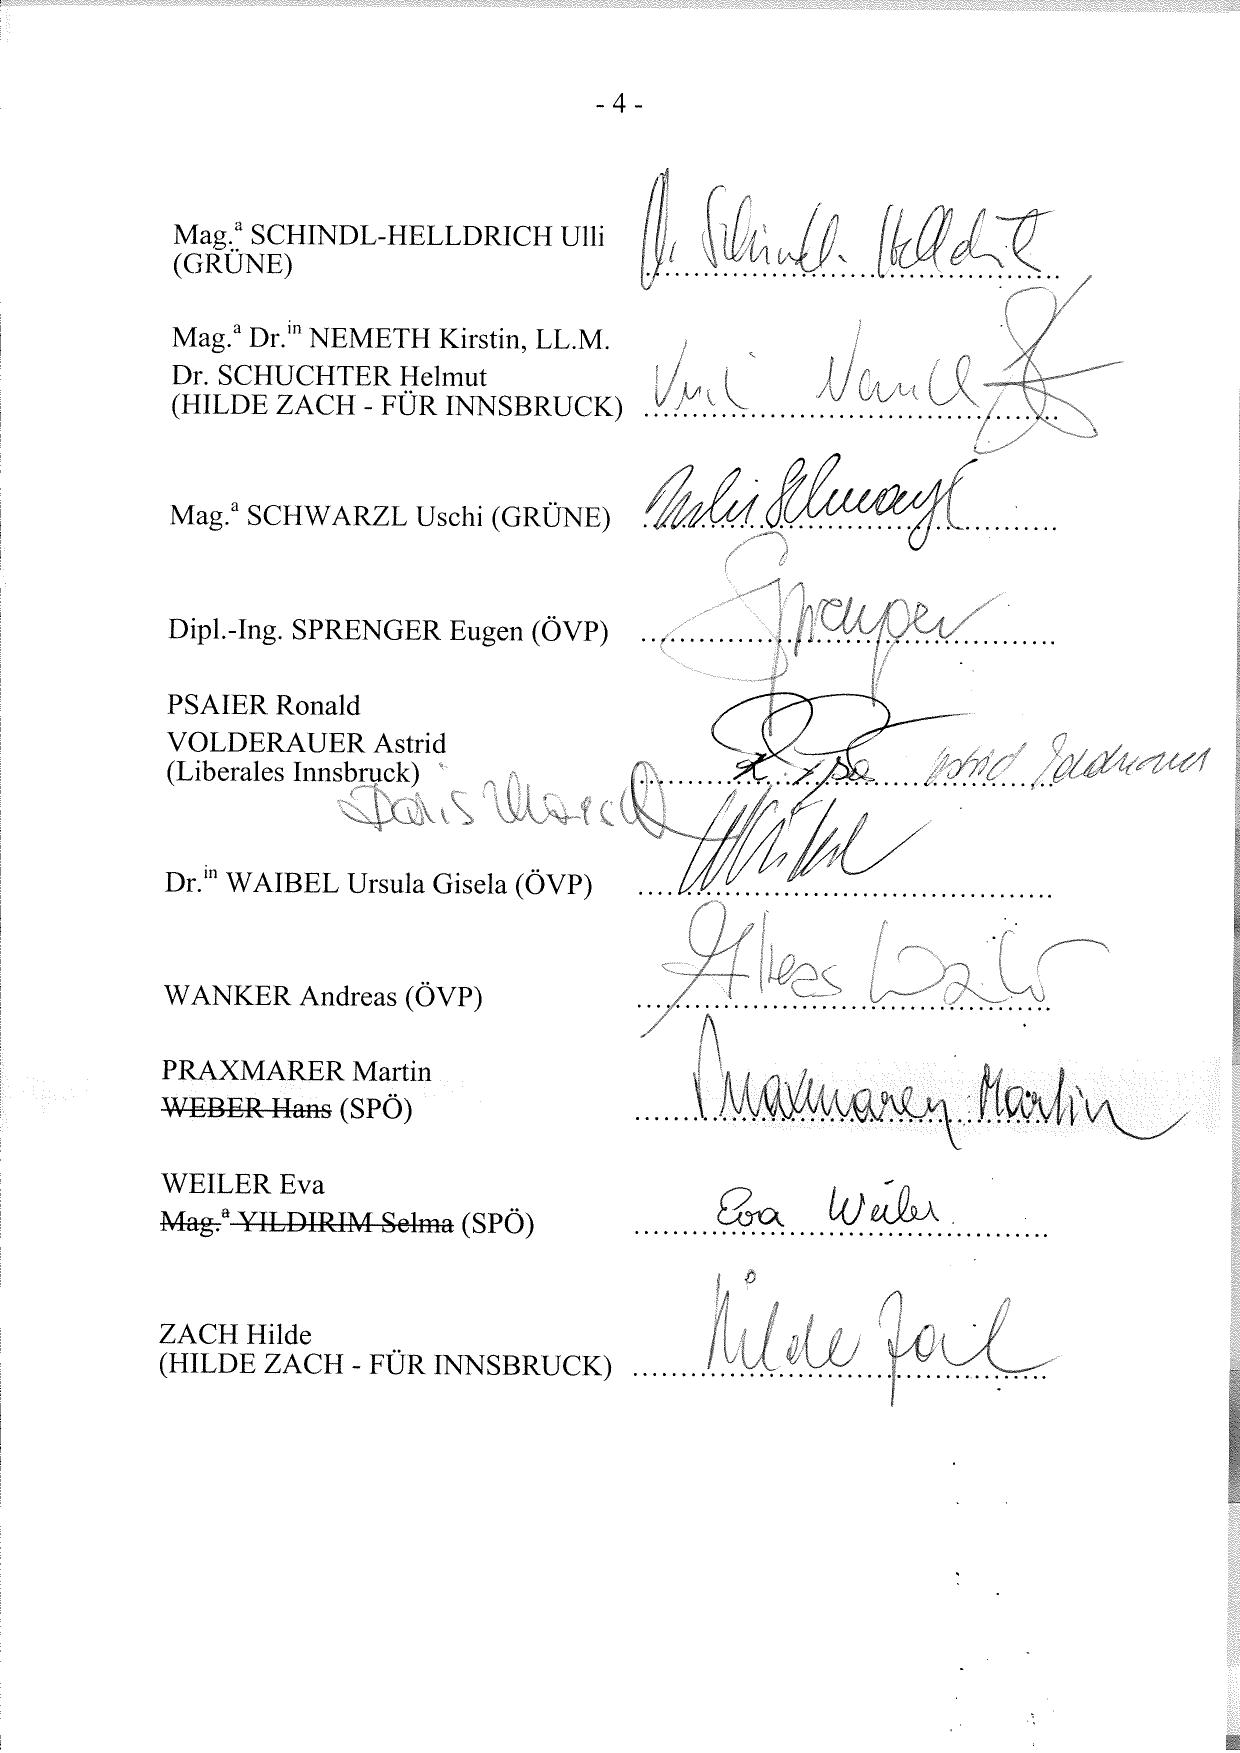 - 4 -
Mag.ª SCHINDL-HELLDRICH Ulli
(GRÜNE)
Schindl-Helldrich
Mag.ª Dr.ⁱⁿ NEMETH Kirstin, LL.M.
Dr. SCHUCHTER Helmut
(HILDE ZACH - FÜR INNSBRUCK)
Mag.ª SCHWARZL Uschi (GRÜNE) Uschi Schwarzl
Dipl.-Ing. SPRENGER Eugen (ÖVP) Sprenger
PSAIER Ronald
VOLDERAUER Astrid
(Liberales Innsbruck) Astrid Volderauer
Doris
Dr.ⁱⁿ WAIBEL Ursula Gisela (ÖVP)
WANKER Andreas (ÖVP)
PRAXMARER Martin
WEBER Hans (SPÖ) Praxmarer Martin
WEILER Eva
Mag.ª YILDIRIM Selma (SPÖ) Eva Weiler
ZACH Hilde
(HILDE ZACH - FÜR INNSBRUCK) Hilde Zach